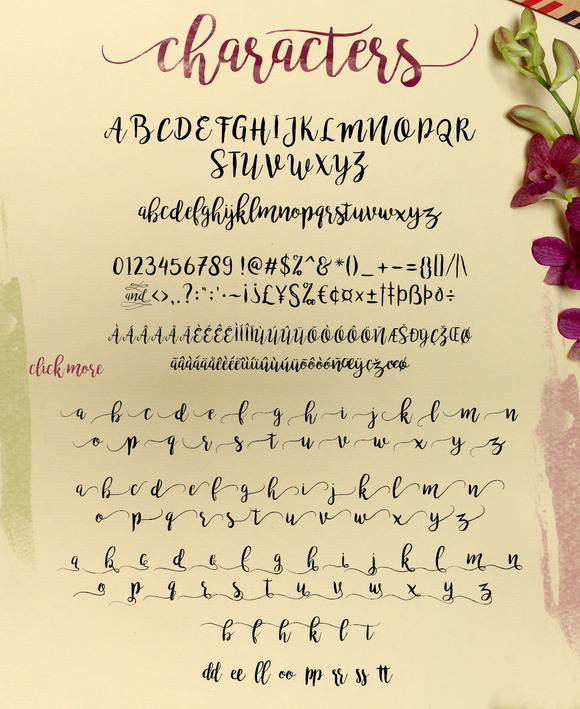 characters
ABCDEFGHIJKLMNOPQR
STUVWXYZ
abcdefghijklmnopqrstuvwxyz
0123456789!@#$%^&*()_+-={}[]/|\
and<>,.?:";'·~¡j£¥§‰€¢¤×±†‡þßÞð÷
click more
a b c d e f g h i j k l m n
o p q r s t u v w x y z
a b c d e f g h i j k l m n
o p q r s t u v w x y z
a b c d e f g h i j k l m n
o p q r s t u v w x y z
b f h k l t
dd ee ll oo pp rr ss tt